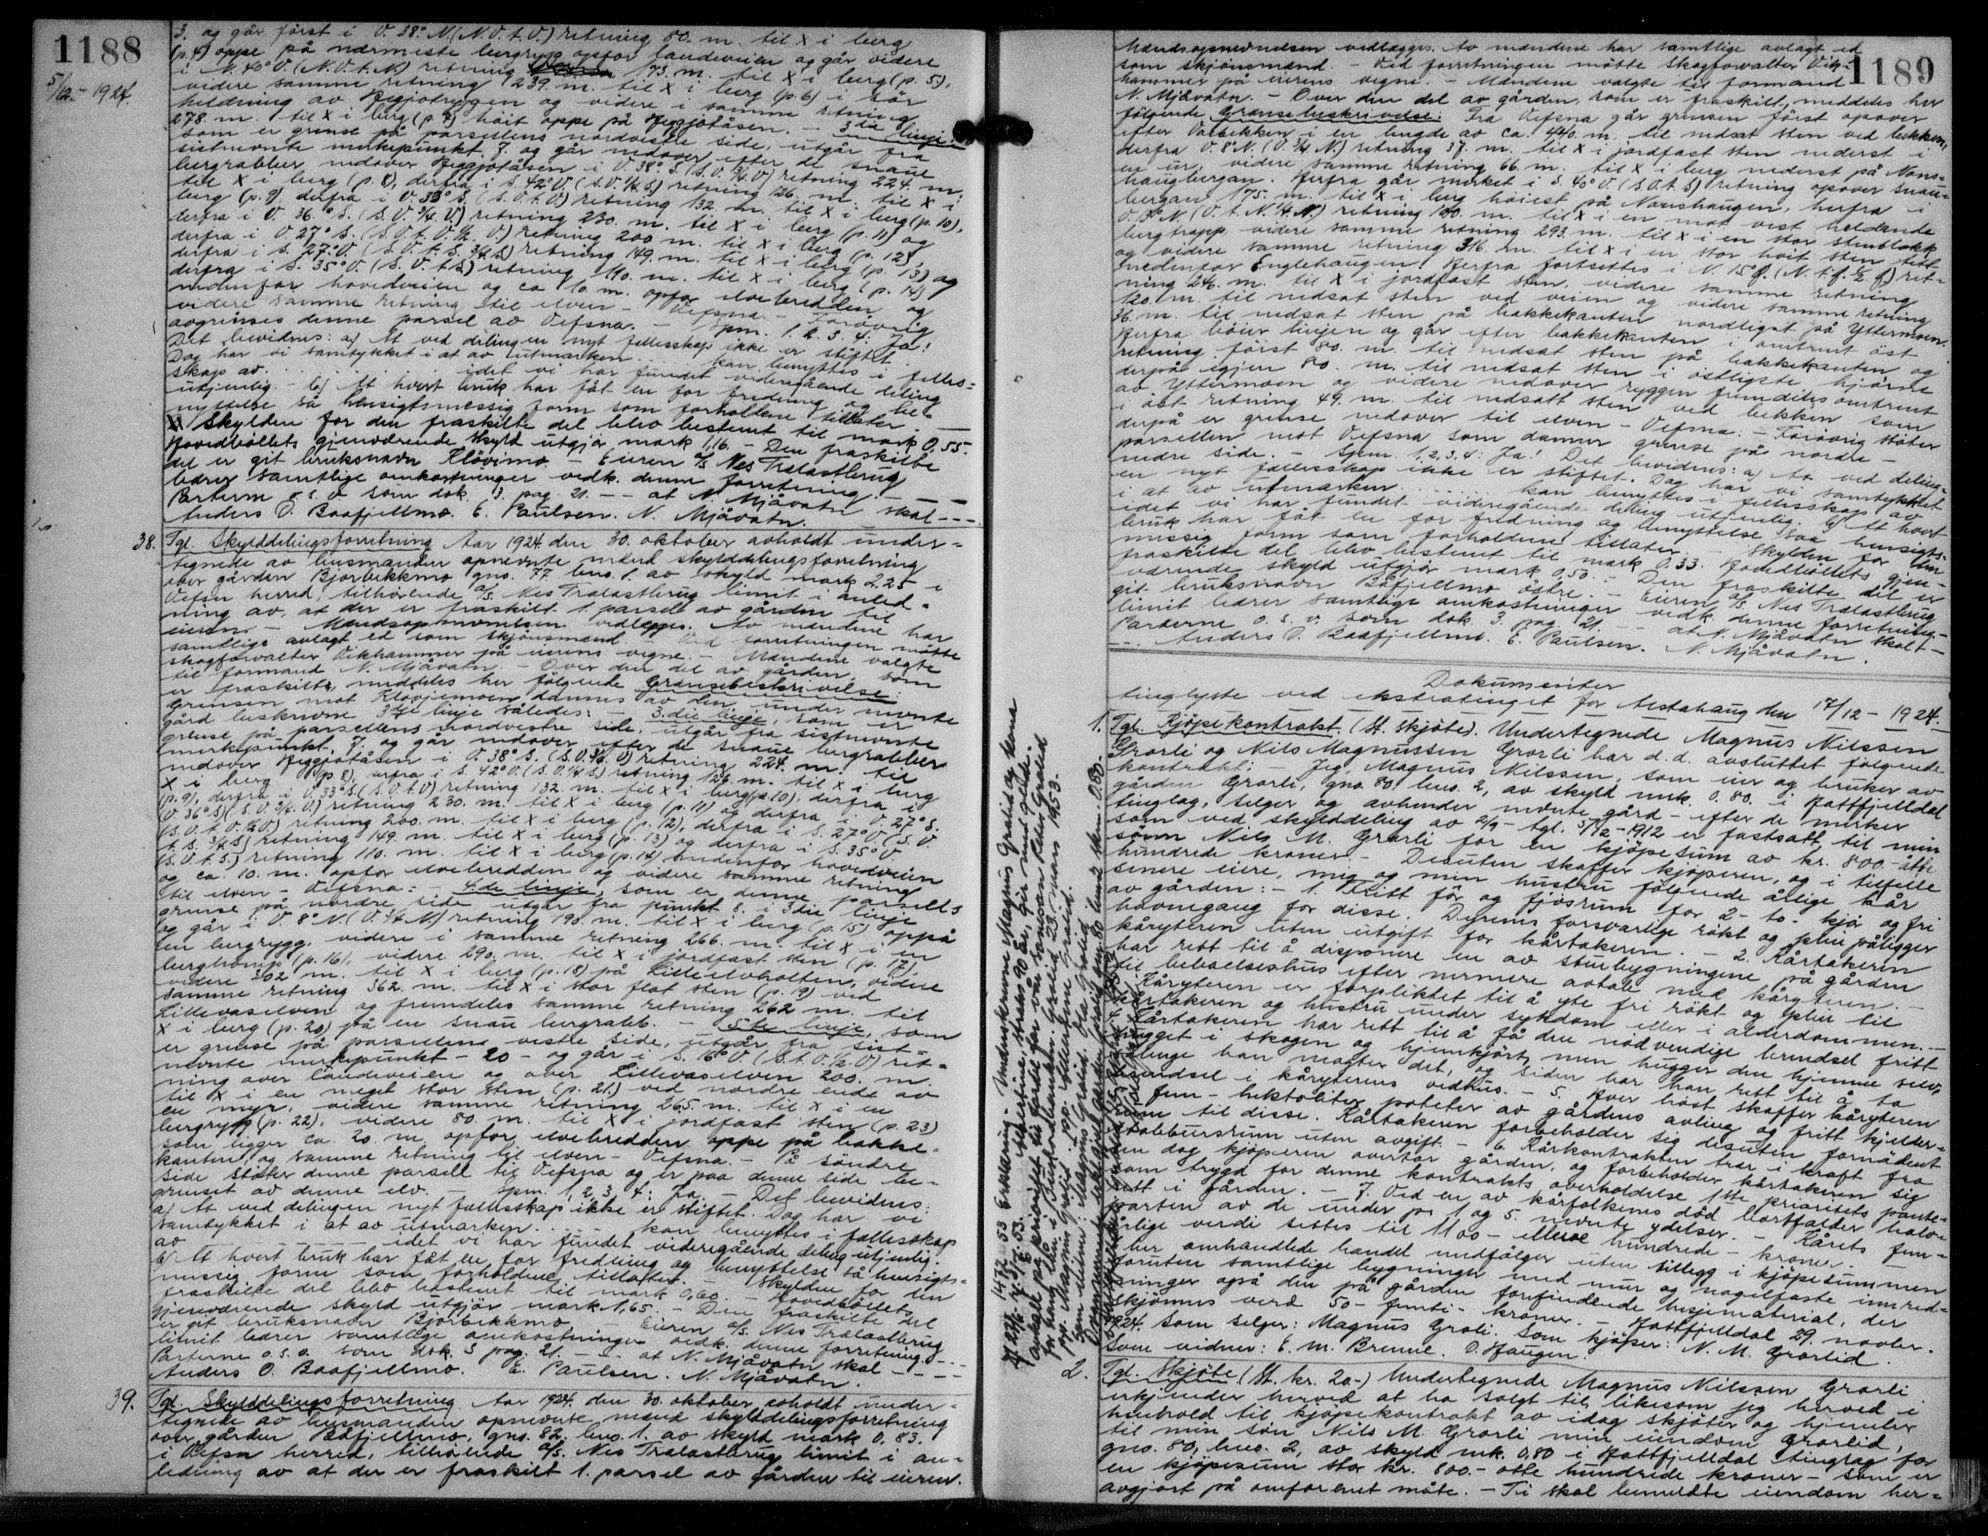 1188
5/12 - 1924.
3. og går först i V. 38° N. (N.V.t.V.) retning 80. m. til X i berg
(p.4) oppe på nærmeste bergrygg opfor landeveien og går videre
i N. 40° V. (N.V.t.N.) retning 173. m. til X i berg (p. 5),
videre samme retning 239. m. til X i berg (p.6) i sör
heldning av Hegjotåsen og videre i samme retning
278. m. til X i berg (p 7) höit oppe på Hegjotåsen. - 3die linje
som er grense på parsellens nordvestle side, utgår fra
sistnevnte merkepunkt 7. og går nedover efter de snaue
bergrabber nedover Heggjotåsen i V. 38° S. (S.V. 3/4 V) retning 224. m.
til X i berg (p. 8), derfra i S. 42° V. (S.V. 1/4 S) retning 126. m. til X i
berg (p. 9), derfra i V. 33° S. (S.V.t.V) retning 132. m. til X i berg (p. 10),
derfra i V. 36.° S. (S.V. 3/4 V) retning 230. m. til X i berg (p. 11) og
derfra i V. 27° S. (S.V.t.V. 1/2 V) retning 200 m. til X i berg (p. 12),
derfra i S. 27.° V. (S.V.t.S. 3/4 S) retning 149. m. til X i berg (p. 13) og
derfra i S. 35° V. (S.V.t.S) retning 110. m. til X i berg (p. 14)
nedenfor hovedveien og ca 10. m. opfor elvebredden og
videre samme retning til elven - Vefsna. - Forövrig
avgrenses denne parsel av Vefsna. - Spm. 1. 2. 3. 4. Ja!
Det bevidnes: a) At ved delingen nyt fellesskap ikke er stiftet
Dog har vi samtykket i at av utmarken ... kan benyttes i felles=
skap av ... idet vi har fundet videregående deling
utjenlig - b) At hvert bruk har fåt en for fredning og be=
nyttelse så hensigtsmessig form som forholdene tillater. -
Skylden for den fraskilte del blev bestemt til mark 0,55.
Hovedböllets gjenværende skyld utgjör mark 1,16 - Den fraskilte
del er git bruksnavn Klövimo. - Eieren A/S Nes Trælastbrug
bærer samtlige omkostninger vedk. denne forretning.
Parterne o.s.v. som dok. 3. pag. 21. - - at N. Mjåvatn skal - - -.
Anders O. Baafjellmo. E. Paulsen. N. Mjåvatn.
38. Tgl. Skylddelingsforretning Aar 1924 den 30. oktober avholdt under=
tegnede av lensmanden opnevnte mænd skylddelingsforretning
over gården Bjorbekkmo gno. 77 bno. 1. av skyld mark 2,25 i
Vefsn herred, tilhörende A/S. Nes Trælastbrug limit. i anled=
ning av, at der er fraskilt 1. parsel av gården til
eieren - Mandsopnevnelsen vedlegges. Av mændene har
samtlige avlagt ed som skjönsmænd - Ved forretningen mötte
skogforvalter Vikhammer på eierens vegne. - Mændene valgte
til formand N. Mjåvatn. - Over den del av gården, som
er fraskilte, meddeles her fölgende Grænsebeskrivelse:
Grensen mot Klövjemoen dannes av den under nevnte
gård beskrevne 3die linje således: 3.die linje, som er
grense på parsellens nordvestre side, utgår fra sistnevnte
merkepunkt, 7. og går nedover efter de snaue bergrabber
nedover Heggjotåsen i V. 38° S. (S.V. 3/4 V) retning 224. m. til
X i berg (p 8), derfra i S. 42° V. (S.V. 1/4 S) retning 126. m. til X i berg
(p. 9), derfra i V. 33° S (S.V.t.V) retning 132. m. til X i berg (p. 10), derfra i
(V. 36° S) (S.V. 3/4 V.) retning 230. m. til X i berg (p. 11) og derfra i V. 27° S.
(S.V.t.V. 1/2 V.) retning 200. m. til X i berg (p. 12), derfra i S. 27° V. (S.V
t. S. 3/4 S) retning 149. m. til X i berg (p. 13) og derfra i S. 35° V
(S.V.t.S.) retning 110. m. til X i berg (p. 14) nedenfor hovedveien
og ca. 10. m. opfor elvebredden og videre samme retning
til elven - Vefsna: - 4.de linje, som er denne parsells
grense på nordre side utgår fra punkt 8. i 3die linje
og går i V. 8° N. (V. 3/4 N) retning 190. m. til X i berg (p. 15) oppå
en bergrygg, videre i samme retning 266. m. til X i en
bergtramp (p. 16), videre 290. m. til X i jordfast sten (p. 17),
videre 302 m. til X i berg (p. 18) på Lilleelvholten, videre
samme retning 362. m. til X i stor flat sten (p. 19) ved
Lillevaselven og fremdeles samme retning 262 m. til
X i berg (p. 20) på en snau bergrabb. - 5.te linje, som
er grense på parsellens vestle side, utgår fra sist=
nevnte merkepunkt - 20 - og går i S. 16° V. (S.t.V. 1/2 V) ret=
ning over landeveien og over Lillevaselven 200. m.
til X i en meget stor sten (p. 21.) ved nordre ende av
en myr, videre samme retning 265. m. til X i en
bergrygg (p. 22), videre 80. m. til X i jordfast sten (p. 23)
som ligger ca. 20. m. opfor elvebredden oppe på bakke=
kanten og samme retning til elven - Vefsna. - På söndre
side stöter denne parsell til Vefsna og er paa denne side be=
grenset av denne elv. - Spm. 1, 2, 3, 4: Ja. - Det bevidnes:
a) At ved delingen nyt fællesskap ikke er stiftet. Dog har vi
samtykket i at av utmarken. ... kan benyttes i fællesskap
av ... idet vi har fundet videregående deling utjenlig.
b) At hvert bruk har fåt en for fredning og benyttelse så hensigts=
messig form som forholdene tillater. - Skylden for den
fraskilte del blev bestemt til mark 0,60. - Hovedböllets
gjenværende skyld utgjör mark 1,65. - Den fraskilte del
er git bruksnavn Bjorbekkmo. - Eieren A/S. Nes Trælastbrug
limit bærer samtlige omkostninger vedk. denne forretning. -
Parterne o.s.v. som dok. 3 pag. 21. - - at N. Mjåvatn skal - - -
Anders O. Baafjellmo. E. Paulsen. N. Mjåvatn.
39. Tgl. Skylddelingsforretning Aar 1924. den 30. oktober avholdt under=
tegnede av lensmanden opnevnte mænd skylddelingsforretning
over gården Båfjellmo, gno. 82. bno. 1. av skyld mark 0.83.
i Vefsn herred, tilhörende A/S. Nes Trælastbrug limit i an=
ledning av at der er fraskilt 1. parsel av gården til eieren.
1189
Mandsopnevnelsen vedlægges. Av mændene har samtlige avlagt ed
som skjönsmænd. - Ved forretningen mötte skogforvalter Vik=
hammer på eierens vegne. - Mændene valgte til formand
N. Mjåvatn. - Over den del av gården, som er fraskilt, meddeles her
fölgende Grænsebeskrivelse: Fra Vefsna går grensen först opover
efter Valbekken i en lengde av ca. 440. m. til nedsat sten ved bekken,
derfra V. 8° N. (V. 3/4 N.) retning 37. m. til X i jordfast sten nederst i
en ur, videre samme retning 66. m. til X i berg nederst på Nons=
haugbergan. Herfra går merket i S. 46° V. (S.V.t.S) retning opover snau=
bergan 175. m. til X i berg höiest på Nonshaugen, herfra i
V. 13° N. (V.t.N. 1/4 N.) retning 180. m. til X i en mot vest heldende
bergtrapp, videre samme retning 293. m. til X i en stor stenblokk
og videre samme retning 316. m. til X i en stor höit sten tett
nedenfor Englehaugen. Herfra fortsettes i N. 15° Ö. (N.t.Ö. 1/2 Ö) ret=
ning 246. m. til X i jordfast sten, videre samme retning
120. m. til nedsat sten ved veien og videre samme retning
36. m. til nedsat sten på bakkekanten nordligst på Yttermoen.
Herfra böier linjen og går efter bakkekanten i omtrent öst
retning först 80. m. til nedsat sten på bakkekanten og
derpå igjen 80. m. til nedsat sten i östligste hjörne
av Yttermoen og videre nedover ryggen fremdeles omtrent
i öst retning 49. m. til nedsatt sten ved bekken som
derpå er grense nedover til elven - Vefsna: - Forövrig stöter
parsellen mot Vefsna som danner grense på nordre -
nedre side. - Spm. 1, 2, 3, 4: Ja! Det bevidnes: a) At ved delin=
en nyt fællesskap ikke er stiftet. Dog har vi samtykket
i at av utmarken ... kan benyttes i fellesskap av
idet vi har fundet videregående deling utjenlig. b) At hvert
bruk har fåt en for fredning og benyttelse saa hensigts=
messig form som forholdene tillater. - Skylden for den
fraskilte del blev bestemt til mark 0,33. Hovedböllets gjen=
værende skyld utgjör mark 0,50. - Den fraskilte del er
git bruksnavn Båfjellmo östre. - Eieren A/S Nes Trælastbrug
limit bærer samtlige omkostninger vedk. denne forretning. -
Parterne o.s.v. som dok. 3. pag. 21. - - at N. Mjåvatn skal -
- - . Anders O. Baafjellmo. E. Paulsen. N. Mjåvatn.
Dokumenter
tinglyste ved ekstratinget for Alstahaug den 17/12 - 1924.
1. Tgl. Kjöpekontrakt. (St. skjöte). Undertegnede Magnus Nilssen
Grorli og Nils Magnussen Grorli har d.d. avsluttet fölgende
kontrakt: - Jeg, Magnus Nilssen, som eier og bruker av
gården Grorli, gno. 80. bno. 2, av skyld mrk. 0.80. i Hattfjelldal
tinglag, selger og avhender nevnte gård - efter de merker
som ved skylddeling av 2/9 - tgl. 5/12 - 1912 er fastsatt, til min
sönn Nils M. Grorli for en kjöpesum av kr. 800 - åtte
hundrede kroner. - Desuten skaffer kjöperen, og i tilfelle
senere eiere, mig og min hustru fölgende årlige kår
av gården: - 1. Fritt fôr og fjösrum for 2 - to - kjör og fri
havnegang for disse. Dyrenes forsvarlige rökt og pleie påligger
kåryteren uten utgift for kårtakeren. - 2. Kårtakeren
har rett til å disponere en av stuebygningene på gården
til beboelseshus efter nermere avtale med kåryteren. -
3. Kåryteren er forpliktet til å yte fri rökt og pleie til
kårtakeren og hustru under sykdom eller i alderdommen. -
4. Kårtakeren har rett til å få den nödvendige brendsel fritt
hugget i skogen og hjemkjört, men hugger den hjemme selv,
sålenge han magter det, og siden har han rett til å ta
brendsel i kåryterens vedhus. - 5. Hver höst skaffer kåryteren
5 - fem - hektoliter poteter av gårdens avling og fritt kjelder=
rum til disse. Kårtakeren forbeholder sig desuten fornödent
stabbursrum uten avgift. - 6. Kårkontrakten trær i kraft fra
den dag kjöperen overtar gården, og forbeholder kårtakeren sig
som trygd for denne kontrakts overholdelse 1ste prioritets pante=
rett i gården. - 7. Ved en av kårfolkenes död bortfalder halv=
parten av de under ps. 1 og 5. nevnte ydelser. - Kårets fem=
årlige verdi settes til 1100 - elleve hundrede - kroner. -
I her omhandlede handel medfölger uten tillegg i kjöpesummen
foruten samtlige bygninger med mur og nagelfaste innred=
ninger også den på gården forefindende hesjematerial, der
skjönnes verd 50 - femti - kroner. - Hattfjelldal 29. novbr.
1924. Som selger: Magnus Groli. Som kjöper: N. M. Grorlid.
Som vidner: E. M. Brenne. O. Haugen.
2. Tgl. Skjöte (St. kr. 20 -) Undertegnede Magnus Nilssen Grorli
erkjender herved at ha solgt til, likesom jeg herved i
henhold til kjöpekontrakt av idag skjöter og hjemler
til min sön Nils M. Grorli min eiendom Grorlid,
gno. 80, bno. 2, av skyld mk. 0,80 i Hattfjelldal tinglag for
en kjöpesum stor kr. 800. - otte hundrede kroner - som er
avgjort på omforenet måte. - Ti skal bemeldte eiendom her=
1472/53 Erklæring: Undertegnede Magnus Grolid og Hanna